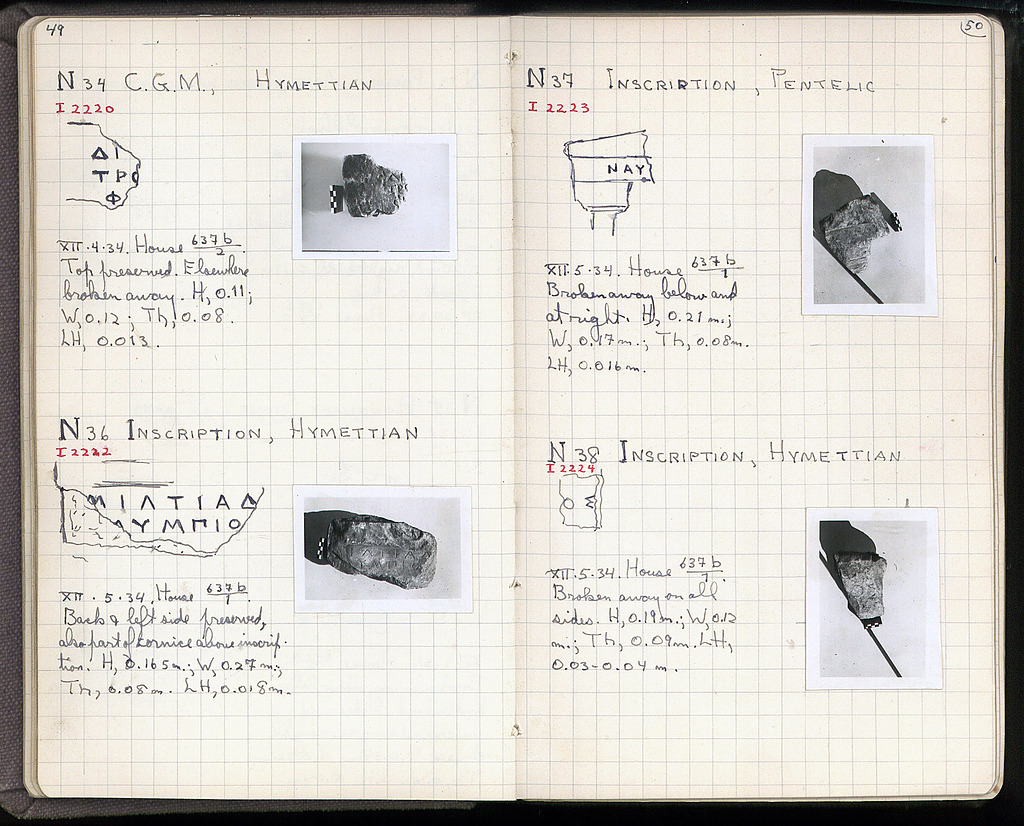 49
N 34 C.G.M., HYMETTIAN
I 2220
ΔΙ
ΤΡΟ
Φ
XII·4·34. House 637b/2.
Top preserved. Elsewhere
broken away. H, 0.11;
W, 0.12; Th, 0.08.
LH, 0.013.
N 36 INSCRIPTION, HYMETTIAN
I 2222
ΜΙΛΤΙΑΔ
ΛΥΜΠΙΟ
XII·5·34. House 637b/1.
Back & left side preserved,
also part of cornice above inscrip-
tion. H, 0.165m.; W, 0.27m.;
Th, 0.08m. LH, 0.018m.
50
N 37 INSCRIPTION, PENTELIC
I 2223
ΝΑΥ
XII·5·34. House 637b/1
Broken away below and
at right. H, 0.21m.;
W, 0.17m.; Th, 0.08m.
LH, 0.016m.
N 38 INSCRIPTION, HYMETTIAN
I 2224
Ο Σ
XII·5·34. House 637b/7.
Broken away on all
sides. H, 0.19m.; W, 0.12
m.; Th, 0.09m. LH,
0.03-0.04 m.